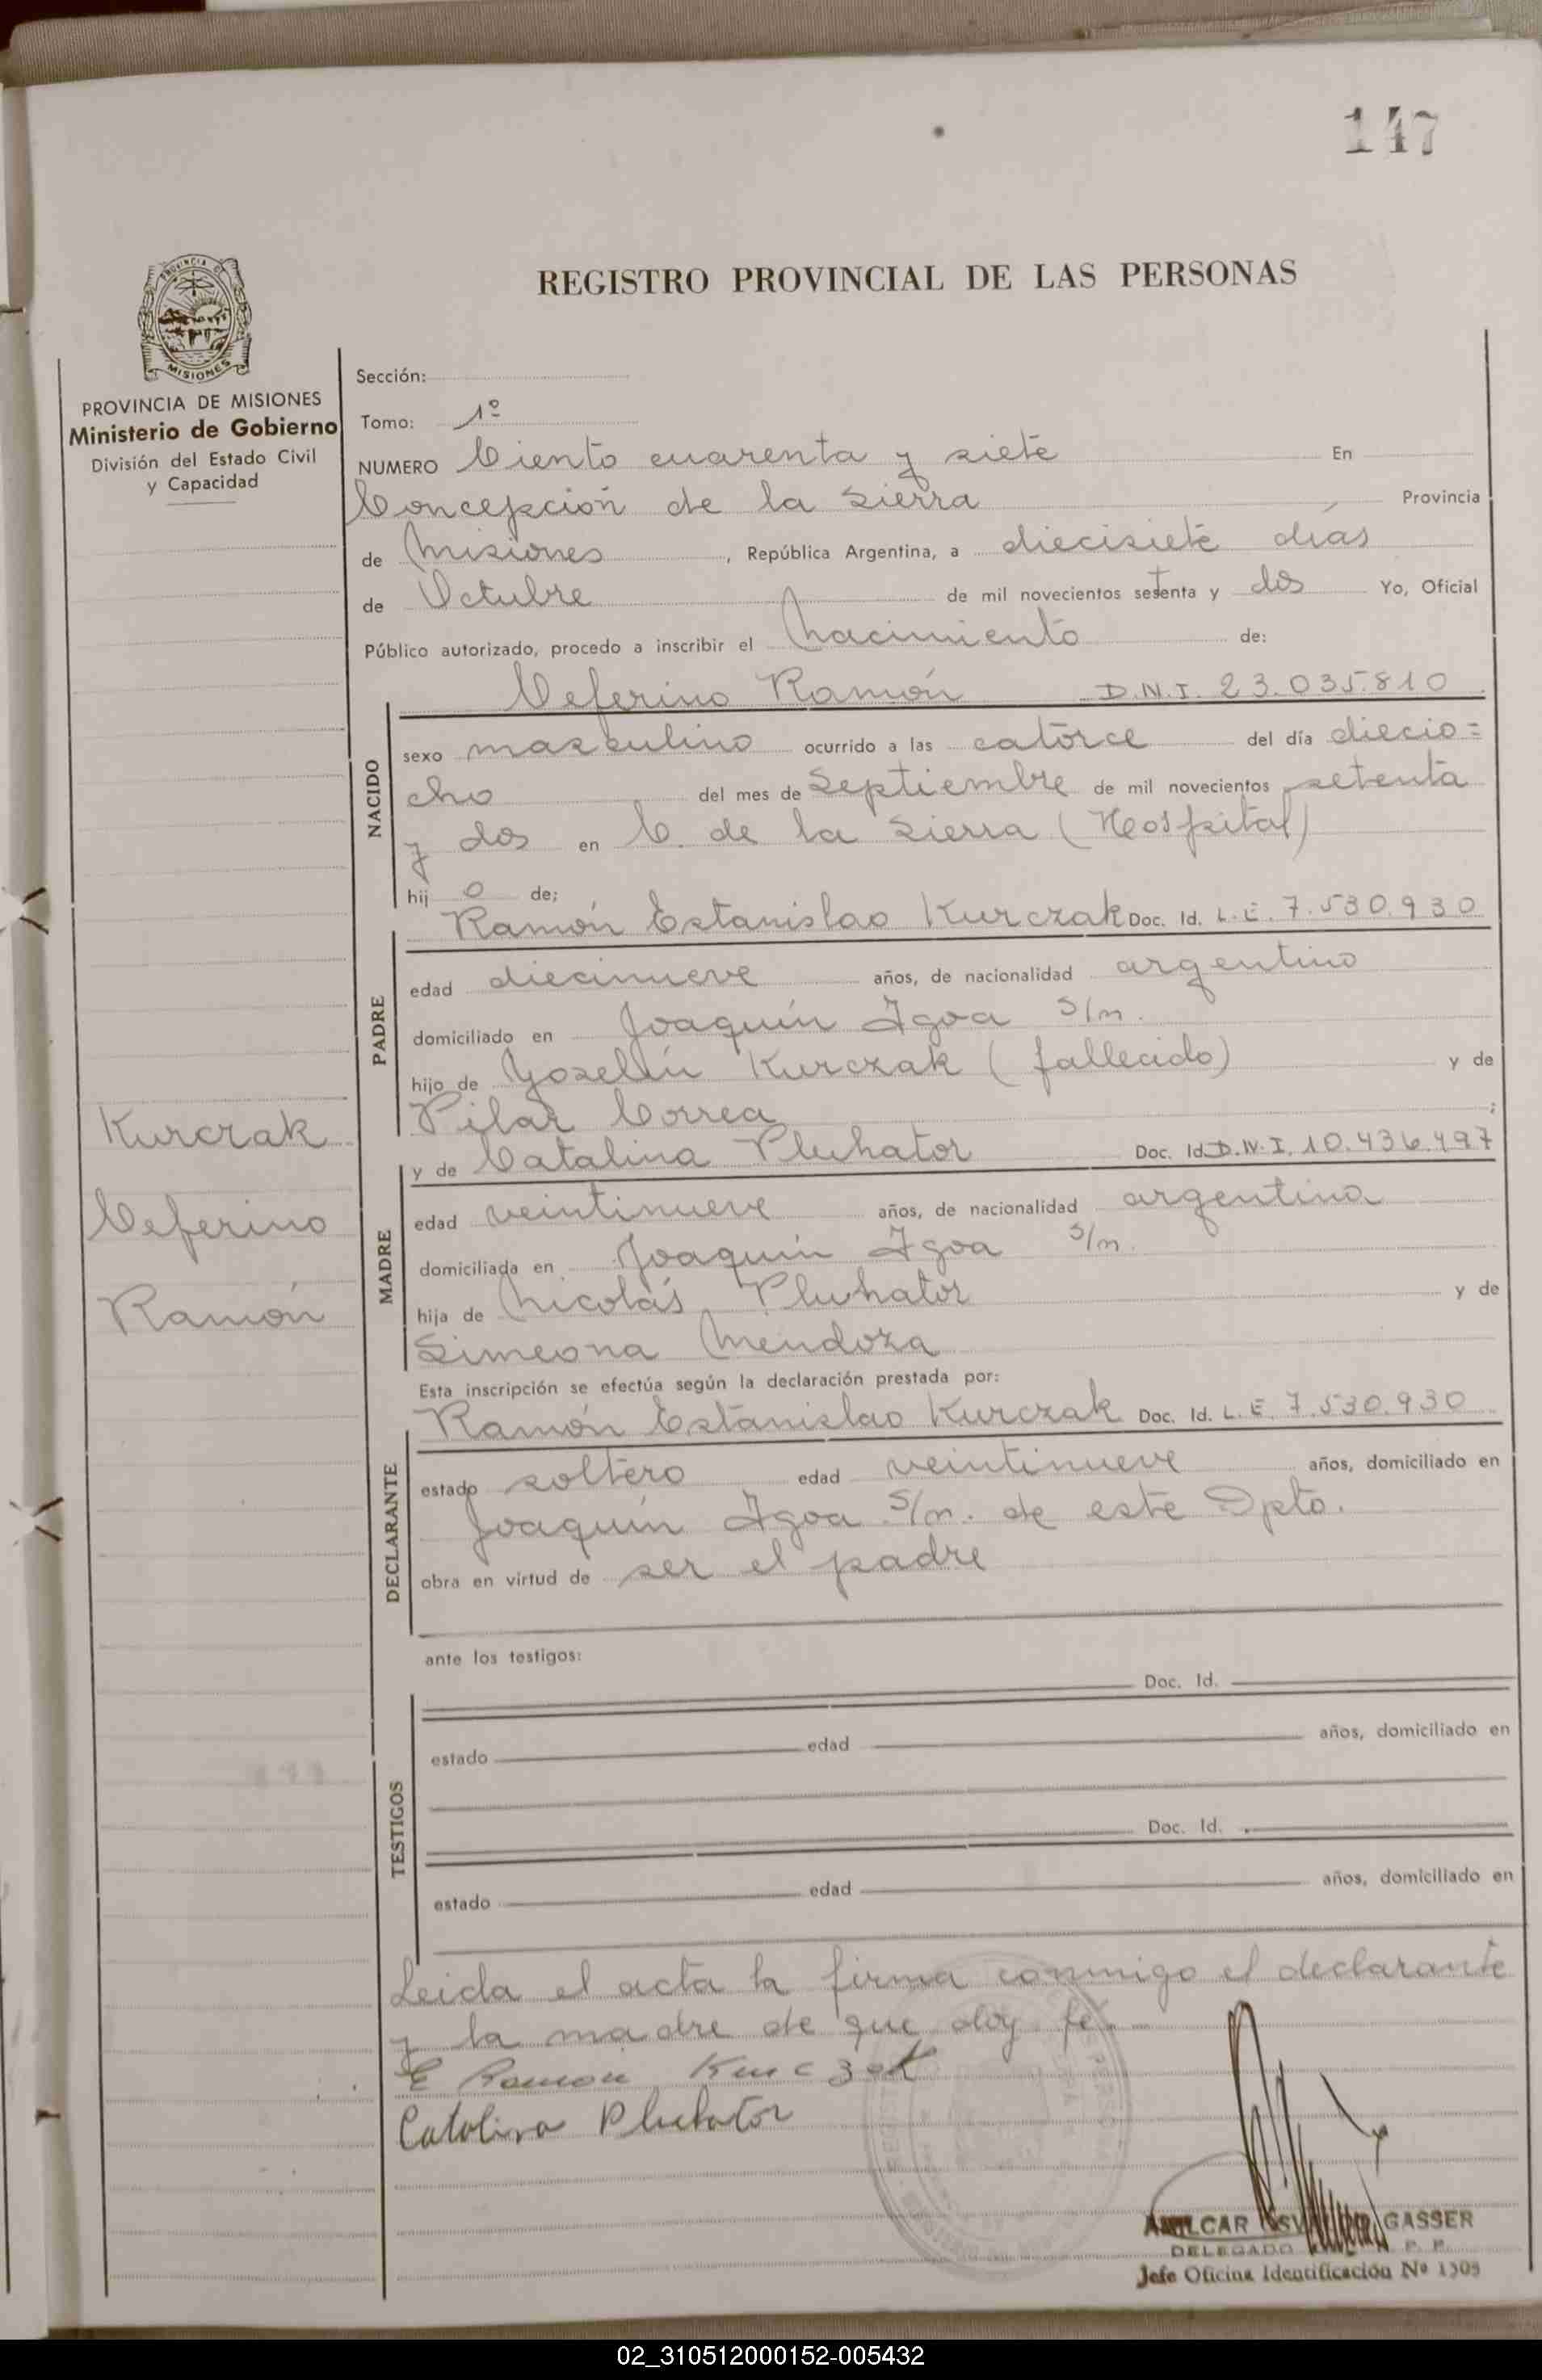 147
REGISTRO PROVINCIAL DE LAS PERSONAS
PROVINCIA DE MISIONES
Ministerio de Gobierno
División del Estado Civil
y Capacidad
Sección:
Tomo: 1º
NUMERO Ciento cuarenta y siete En
Concepción de la Sierra Provincia
de Misiones, República Argentina, a diecisiete días
de Octubre de mil novecientos setenta y dos Yo, Oficial
Público autorizado, procedo a inscribir el Nacimiento de:
Ceferino Ramón D.N.I. 23.035.810
NACIDO
sexo masculino ocurrido a las catorce del día diecio=
cho del mes de Septiembre de mil novecientos setenta
y dos en C. de la Sierra (Hospital)
hij o de;
Ramón Estanislao Kurczak Doc. Id. L.E. 7.530.930
PADRE
edad diecinueve años, de nacionalidad argentino
domiciliado en Joaquín Agoa S/n.
hijo de Kurczak (fallecido) y de
Pilar Correa;
y de Catalina Pluhator Doc. Id. D.N.I. 10.436.497
MADRE
edad veintinueve años, de nacionalidad argentina
domiciliada en Joaquín Agoa S/n.
hija de Nicolás Pluhator y de
Simeona Mendoza
Esta inscripción se efectúa según la declaración prestada por:
Ramón Estanislao Kurczak Doc. Id. L.E. 7.530.930
DECLARANTE
estado soltero edad veintinueve años, domiciliado en
Joaquín Agoa S/n. de este Dpto.
obra en virtud de ser el padre
ante los testigos:
Doc. Id.
TESTIGOS
estado edad años, domiciliado en
Doc. Id.
estado edad años, domiciliado en
Leida el acta la firma conmigo el declarante
y la madre de que doy fé.
E Ramon Kurczak
Catalina Pluhator
Kurczak
Ceferino
Ramón
GASSER
DELEGADO R. P. P.
Jefe Oficina Identificación Nº 1505
02_310512000152-005432